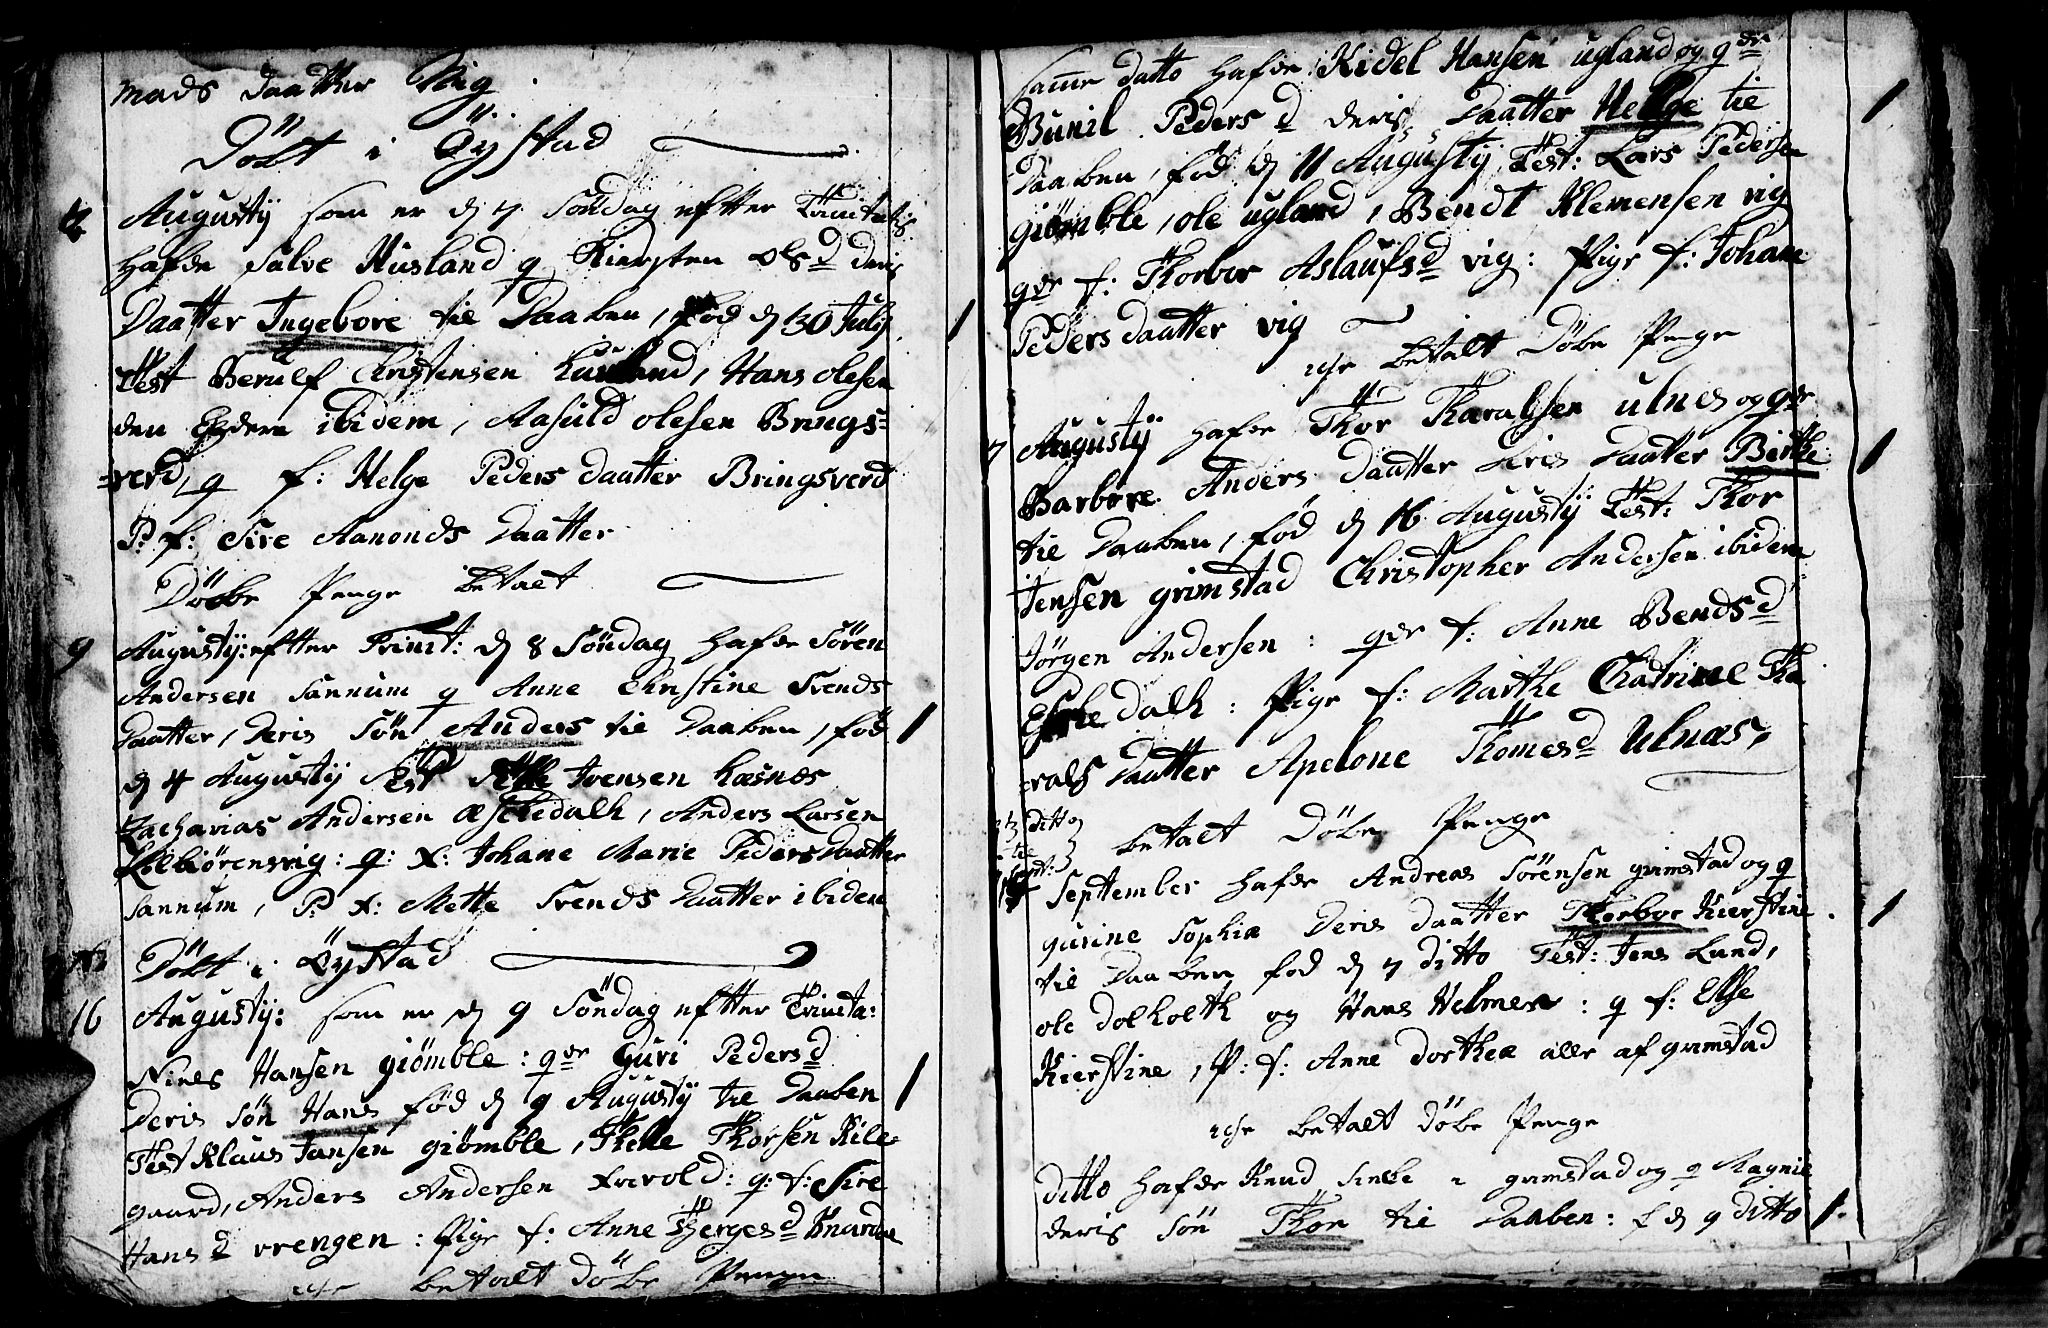 Mads daatter Vig.
Döbt i Öÿstad
2 Augustÿ som er d 7 Söndag eftter Trinitatis
hafde Salve Husland q Kiersten Ols d deris
Daatter Ingebore til Daaben, fød d 30 July
Test Berulf Christensen Husland, Hans olesen
den Eldere ibidem, Aasuld olesen Brings=
=verd, q f: Helge Peders daatter Bringsverd
P: f: Sire Aanonds Daatter
Döbe Penge betalt
9 Augustÿ: eftter Trinit: d 8 Söndag hafde Sören
Andersen Sannum q Anne Christine Svends
Daatter, Deris Sön Anders til Daaben, fød
d 4 Augustÿ Test Ivensen Hæsnæs
Zacharias Andersen Æskedalh, Anders Larsen
Kolbiörensvig: q: f: Johane Marie Peders daatter
Sannum, P: f: Mette Svends Daatter ibidem
Döbt i Öÿstad
16 Augustÿ: som er d 9 Söndag eftter Trinita:
Niels Hansen giömble: qve Guri Peders d
Deris Sön Hans fød d 9 Augustÿ til Daaben
Test Klaus Jansen giömble, Thorsen Kile
gaard, Anders Andersen Kverold: q: f: Sire
Hans d vrengen: Pige f: Anne d
betalt Döbe Penge
Samme datto hafde Kidel Hansen ugland og qve
Bunil Peders d deris Daatter Helge til
Daaben, fød d 11 Augustÿ Test: Lars Pedersen
giömble, ole ugland, Bendt Klemensen vig
qve f: Thorbor Aslaufs d vig: Pige f: Johane
Peders daatter vig
betalt Döbe Penge
Augustÿ hafde Thor Tharalsen ulnes og qve
Barbore Anders Daatter Deris Daatter Birthe
til Daaben, fød d 16 Augustÿ Test: Thor
Jensen grimstad Christopher Andersen ibidem
Jörgen Andersen: qve f: Anne Bends d
Eskedalh: Pige f: Marthe Chatrine Tha
=rals Daatter Apelone Thomes d Ulnæs,
ditto betalt Döbe Penge
September hafde Andreas Sörensen grimstad og q
gurine Sophia Deris Daatter Thorbor Kierstine
til Daaben fød d 7 ditto Test: Jens Lund,
ole dolholth og Hans Holmer: q f: Else
Kierstine, P: f: Anne dorthea alle af grimstad
betalt Döbe Penge
ditto hafde Knud i grimstad og q Magnil
deris Sön Thor til Daaben: f d 9 ditto